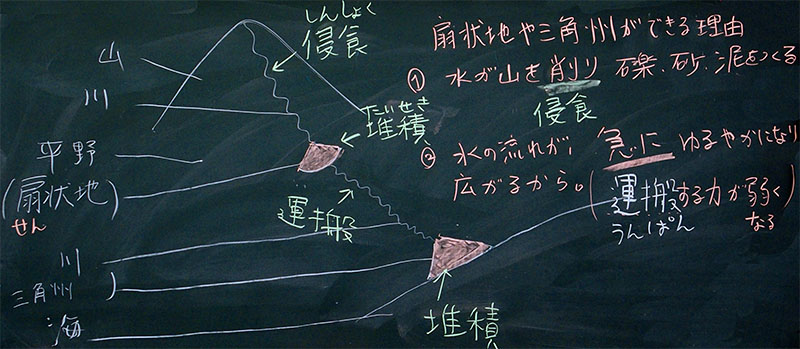 山
川
平野
(扇状地)
せん
川
三角州)
海
しんしょく
侵食
たいせき
堆積
運搬
堆積
扇状地や三角州ができる理由
① 水が山を削り 礫、砂、泥をつくる
侵食
② 水の流れが、急に ゆるやかになり
広がるから。(運搬する力が弱く
うんぱん なる